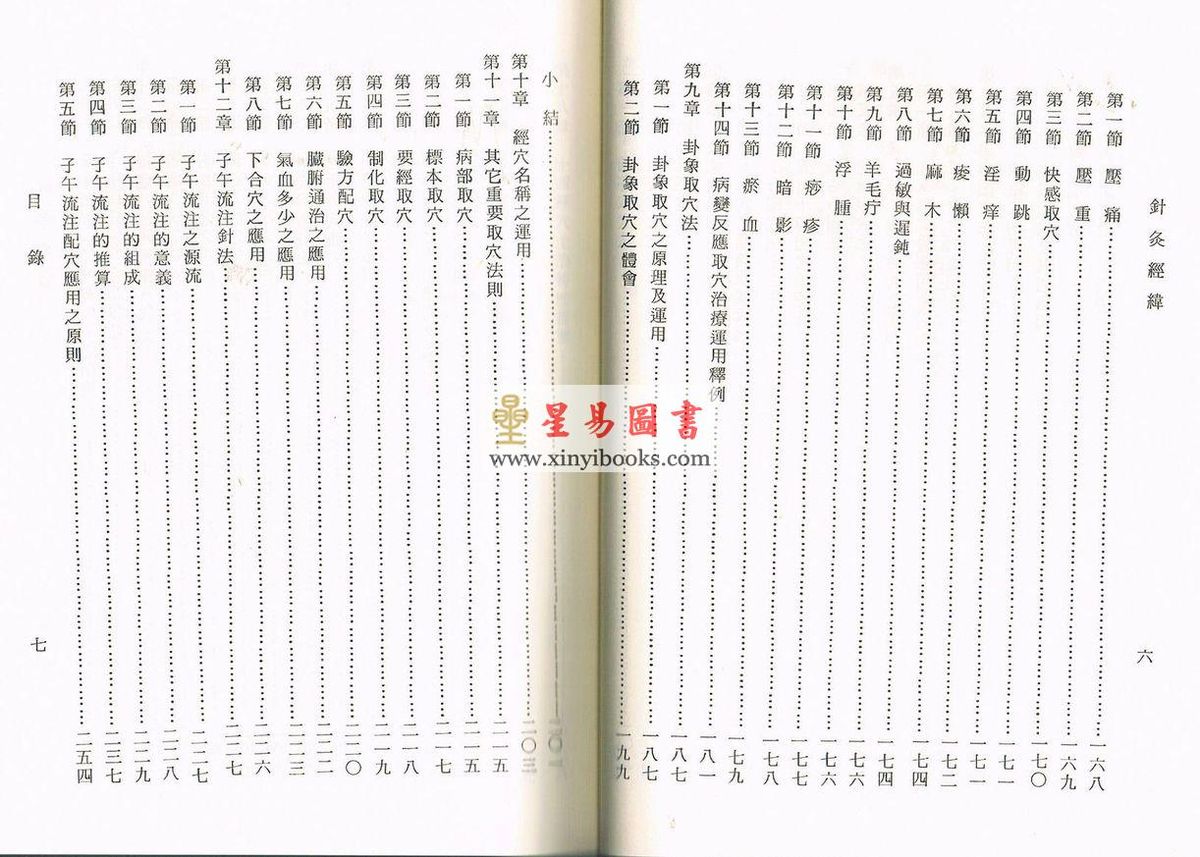 針灸經緯
六
第一節 壓痛……一六八
第二節 壓重……一六九
第三節 快感取穴……一七〇
第四節 動跳……一七一
第五節 淫痒……一七一
第六節 痠懶……一七二
第七節 麻木……一七四
第八節 過敏與遲鈍……一七四
第九節 羊毛疔……一七六
第十節 浮腫……一七六
第十一節 痧疹……一七七
第十二節 暗影……一七八
第十三節 瘀血……一七九
第十四節 病變反應取穴治療運用釋例……一八一
第九章 卦象取穴法……一八七
第一節 卦象取穴之原理及運用……一八七
第二節 卦象取穴之體會……一九九
小結……
第十章 經穴名稱之運用……二〇三
第十一章 其它重要取穴法則……二一五
第一節 病部取穴……二一五
第二節 標本取穴……二一七
第三節 要經取穴……二一八
第四節 制化取穴……二一九
第五節 驗方配穴……二二〇
第六節 臟腑通治之應用……二二二
第七節 氣血多少之應用……二二三
第八節 下合穴之應用……二二六
第十二章 子午流注針法……二二七
第一節 子午流注之源流……二二七
第二節 子午流注的意義……二二八
第三節 子午流注的組成……二二九
第四節 子午流注的推算……二三七
第五節 子午流注配穴應用之原則……二五四
目錄
七
星易圖書
www.xinyibooks.com